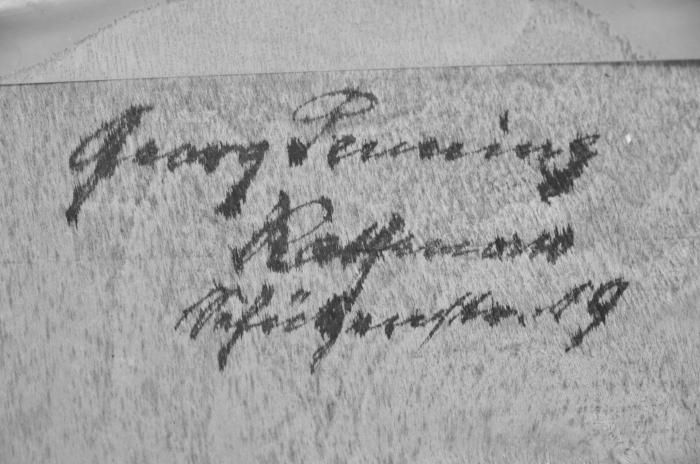 Georg Penning
Rathenow
Schützenstr. 19